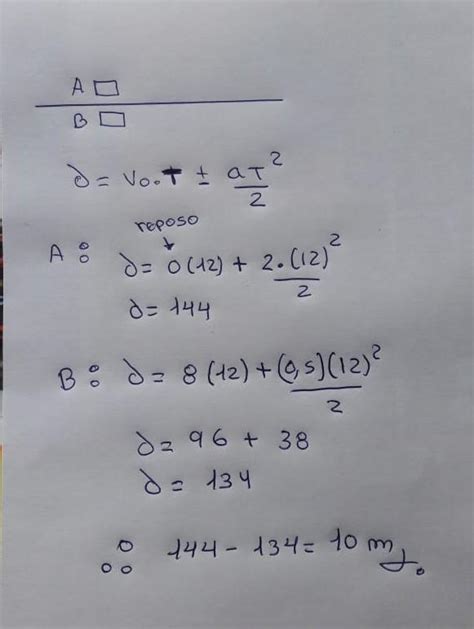 A □
B □
d = Vo.T ± aT²/2
reposo
A: d = 0(12) + 2.(12)²/2
d = 144
B: d = 8(12) + (0,5)(12)²/2
d = 96 + 38
d = 134
∴ 144 - 134 = 10 m